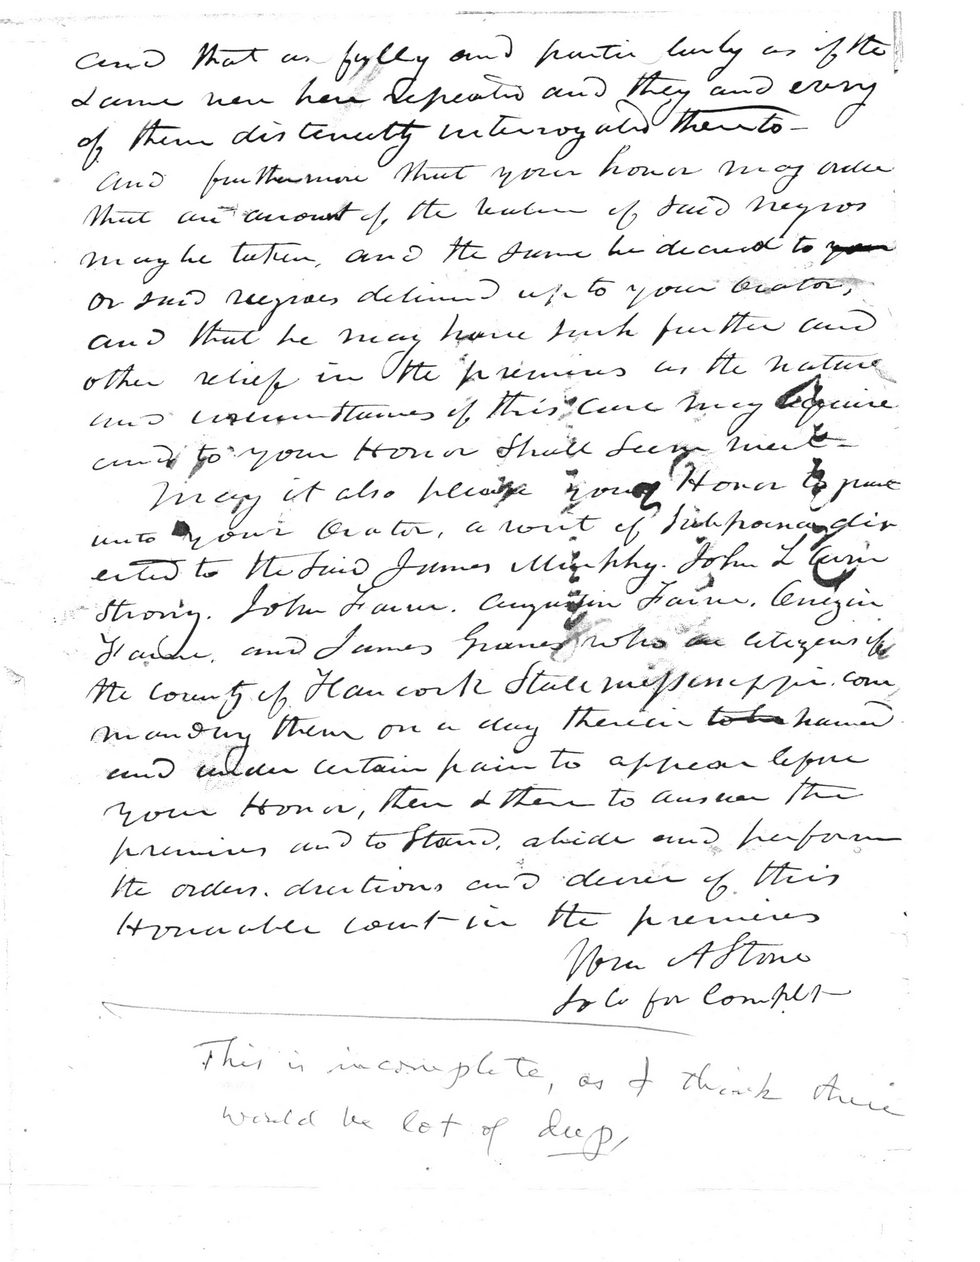 and that as fully and particularly as if the
same were here repeated and they and every
of them distinctly interrogated thereto -
and furthermore that your honor may order
that an amount of the value of said negros
may be taken, and the same be decreed to your
or said negroes delivered up to your Orator,
and that he may have such further and
other relief in the premises as the nature
and circumstances of this case may require
and to your Honor shall seem meet -
May it also please your Honor to grant
unto your Orator, a writ of Subpoena dir
ected to the said James Murphy. John L Arm
strong. John Favre. Augustin Favre. Onezin
Favre. and James Graves who are citizens of
the County of Hancock State Missississippi. com
manding them on a day therein to be named
and under certain pain to appear before
your Honor, then & there to answer the
premises and to Stand, abide and perform
the orders. directions and decree of this
Honorable court in the premises
Wm A Stone
for Complt
This is incomplete, as I think there
would be lot of dup,